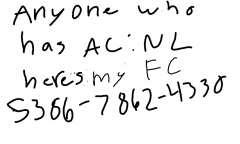 Anyone who
has AC:NL
here's my FC
5306-7862-4330